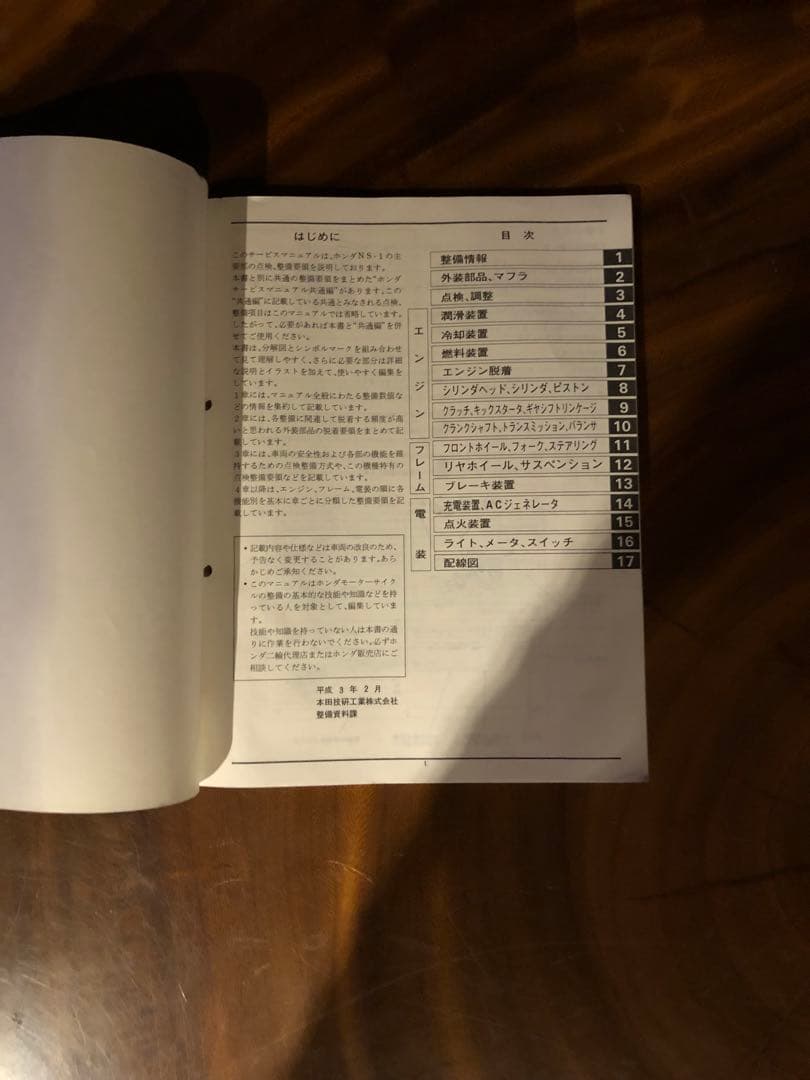 はじめに
このサービスマニュアルは、ホンダNS-1の主
要部の点検、整備要領を説明しております。
本書と別に共通の整備要領をまとめた“ホンダ
サービスマニュアル共通編”があります。この
“共通編”に記載している共通とみなされる点検、
整備項目はこのマニュアルでは省略しています。
したがって、必要があれば本書と“共通編”を併
せてご使用ください。
本書は、分解図とシンボルマークを組み合わせ
て見て理解しやすく、さらに必要な部分は詳細
な説明とイラストを加えて、使いやすく編集を
しています。
1章には、マニュアル全般にわたる整備数値な
どの情報を集約して記載しています。
2章には、各整備に関連して脱着する頻度が高
いと思われる外装部品の脱着要領をまとめて記
載しています。
3章には、車両の安全性および各部の機能を維
持するための点検整備方式や、この機種特有の
点検整備要領などを記載しています。
4章以降は、エンジン、フレーム、電装の順に各
機能別を基本に章ごとに分類した整備要領を記
載しています。
•記載内容や仕様などは車両の改良のため、
予告なく変更することがあります。あら
かじめご承知ください。
•このマニュアルはホンダモーターサイク
ルの整備の基本的な技能や知識などを持
っている人を対象として、編集していま
す。
技能や知識を持っていない人は本書の通
りに作業を行わないでください。必ずホ
ンダ二輪代理店またはホンダ販売店にご
相談してください。
平成 3 年 2 月
本田技研工業株式会社
整備資料課
目 次
整備情報 1
外装部品、マフラ 2
点検、調整 3
エンジン
潤滑装置 4
冷却装置 5
燃料装置 6
エンジン脱着 7
シリンダヘッド、シリンダ、ピストン 8
クラッチ、キックスタータ、ギヤシフトリンケージ 9
クランクシャフト、トランスミッション、バランサ 10
フレーム
フロントホイール、フォーク、ステアリング 11
リヤホイール、サスペンション 12
ブレーキ装置 13
電装
充電装置、ACジェネレータ 14
点火装置 15
ライト、メータ、スイッチ 16
配線図 17
1